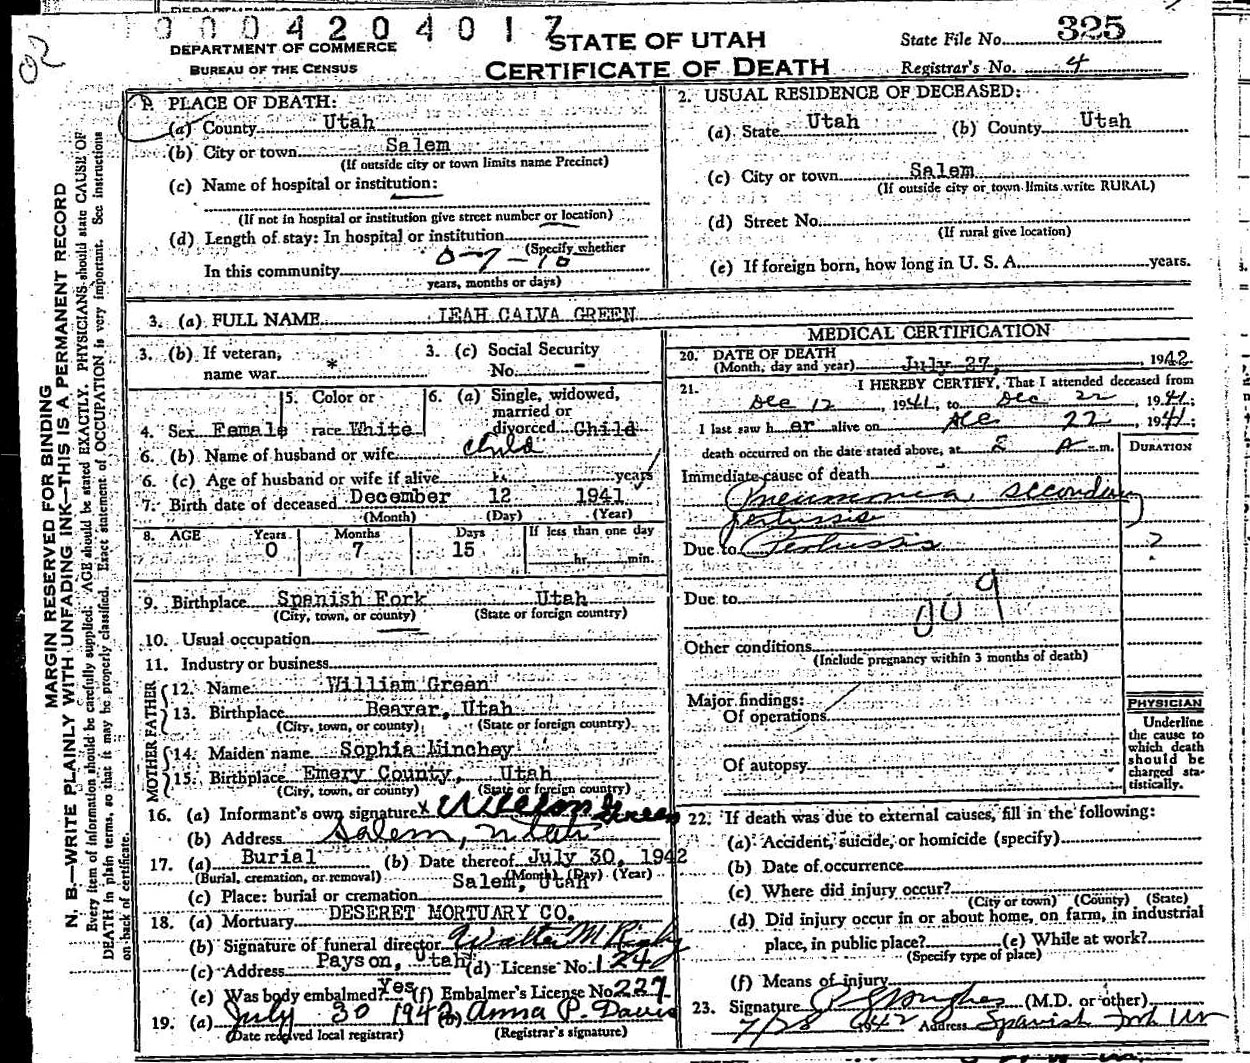 0004204017
DEPARTMENT OF COMMERCE
BUREAU OF THE CENSUS
STATE OF UTAH
CERTIFICATE OF DEATH
State File No. 325
Registrar's No. 4
MARGIN RESERVED FOR BINDING
N. B.—WRITE PLAINLY WITH UNFADING INK—THIS IS A PERMANENT RECORD
Every item of information should be carefully supplied. AGE should be stated EXACTLY. PHYSICIANS should state CAUSE OF
DEATH in plain terms, so that it may be properly classified. Exact statement of OCCUPATION is very important. See instructions
on back of certificate.
PLACE OF DEATH:
(a) County Utah
(b) City or town Salem
(If outside city or town limits name Precinct)
(c) Name of hospital or institution:
(If not in hospital or institution give street number or location)
(d) Length of stay: In hospital or institution
(Specify whether
In this community 0-7-10
years, months or days)
2. USUAL RESIDENCE OF DECEASED:
(a) State Utah (b) County Utah
(c) City or town Salem
(If outside city or town limits write RURAL)
(d) Street No.
(If rural give location)
(e) If foreign born, how long in U. S. A. years.
3. (a) FULL NAME LEAH CALVA GREEN
3. (b) If veteran,
name war *
3. (c) Social Security
No. -
4. Sex Female
5. Color or
race White
6. (a) Single, widowed,
married or
divorced Child
6. (b) Name of husband or wife child
6. (c) Age of husband or wife if alive years
7. Birth date of deceased December 12 1941
(Month) (Day) (Year)
8. AGE Years Months Days If less than one day
0 7 15 hr. min.
9. Birthplace Spanish Fork Utah
(City, town, or county) (State or foreign country)
10. Usual occupation
11. Industry or business
FATHER
12. Name William Green
13. Birthplace Beaver, Utah
(City, town, or county) (State or foreign country)
MOTHER
14. Maiden name Sophia Hinchey
15. Birthplace Emery County, Utah
(City, town, or county) (State or foreign country)
16. (a) Informant's own signature x William Green
(b) Address Salem, Utah
17. (a) Burial (b) Date thereof July 30, 1942
(Burial, cremation, or removal) (Month) (Day) (Year)
(c) Place: burial or cremation Salem, Utah
18. (a) Mortuary DESERET MORTUARY CO.
(b) Signature of funeral director Walter M
(c) Address Payson, Utah (d) License No. 124
(e) Was body embalmed? Yes (f) Embalmer's License No. 227
19. (a) July 30 1942 (b) Anna P. Davis
(Date received local registrar) (Registrar's signature)
MEDICAL CERTIFICATION
20. DATE OF DEATH
(Month, day and year) July 27, 1942
21. I HEREBY CERTIFY, That I attended deceased from
Dec 12, 1941, to Dec 22, 1941;
I last saw her alive on Dec 22, 1941;
death occurred on the date stated above, at 8 A m.
DURATION
Immediate cause of death
Pneumonia, secondary
pertussis
Due to Pertussis ?
Due to
009
Other conditions
(Include pregnancy within 3 months of death)
Major findings:
Of operations
Of autopsy
PHYSICIAN
Underline
the cause to
which death
should be
charged sta-
tistically.
22. If death was due to external causes, fill in the following:
(a) Accident, suicide, or homicide (specify)
(b) Date of occurrence
(c) Where did injury occur?
(City or town) (County) (State)
(d) Did injury occur in or about home, on farm, in industrial
place, in public place? (e) While at work?
(Specify type of place)
(f) Means of injury
23. Signature Hughes (M.D. or other)
7/28 1942 Address Spanish Fork Ut